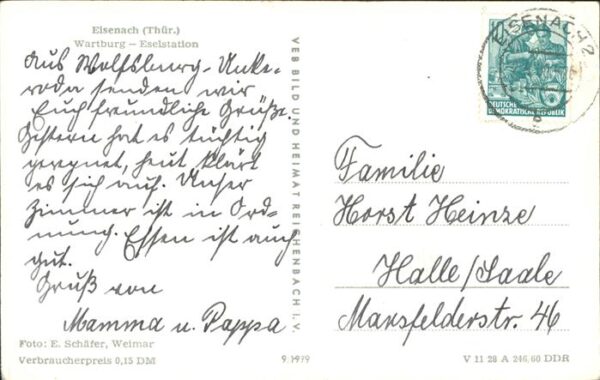 Eisenach (Thür.)
Wartburg — Eselstation
Aus Wolfsburg-Unke-
roda senden wir
Euch freundliche Grüße.
Gestern hat es tüchtig
geregnet, heut klärt
es sich auf. Unser
Zimmer ist in Ord-
nung. Essen ist auch
gut.
Gruß von
Mamma u. Pappa
Foto: E. Schäfer, Weimar
Verbraucherpreis 0,15 DM
VEB BILD UND HEIMAT REICHENBACH I. V.
9/1979
EISENACH 2
10
DEUTSCHE
DEMOKRATISCHE REPUBLIK
Familie
Horst Heinze
Halle/Saale
Mansfelderstr. 46
V 11 28 A 246/60 DDR